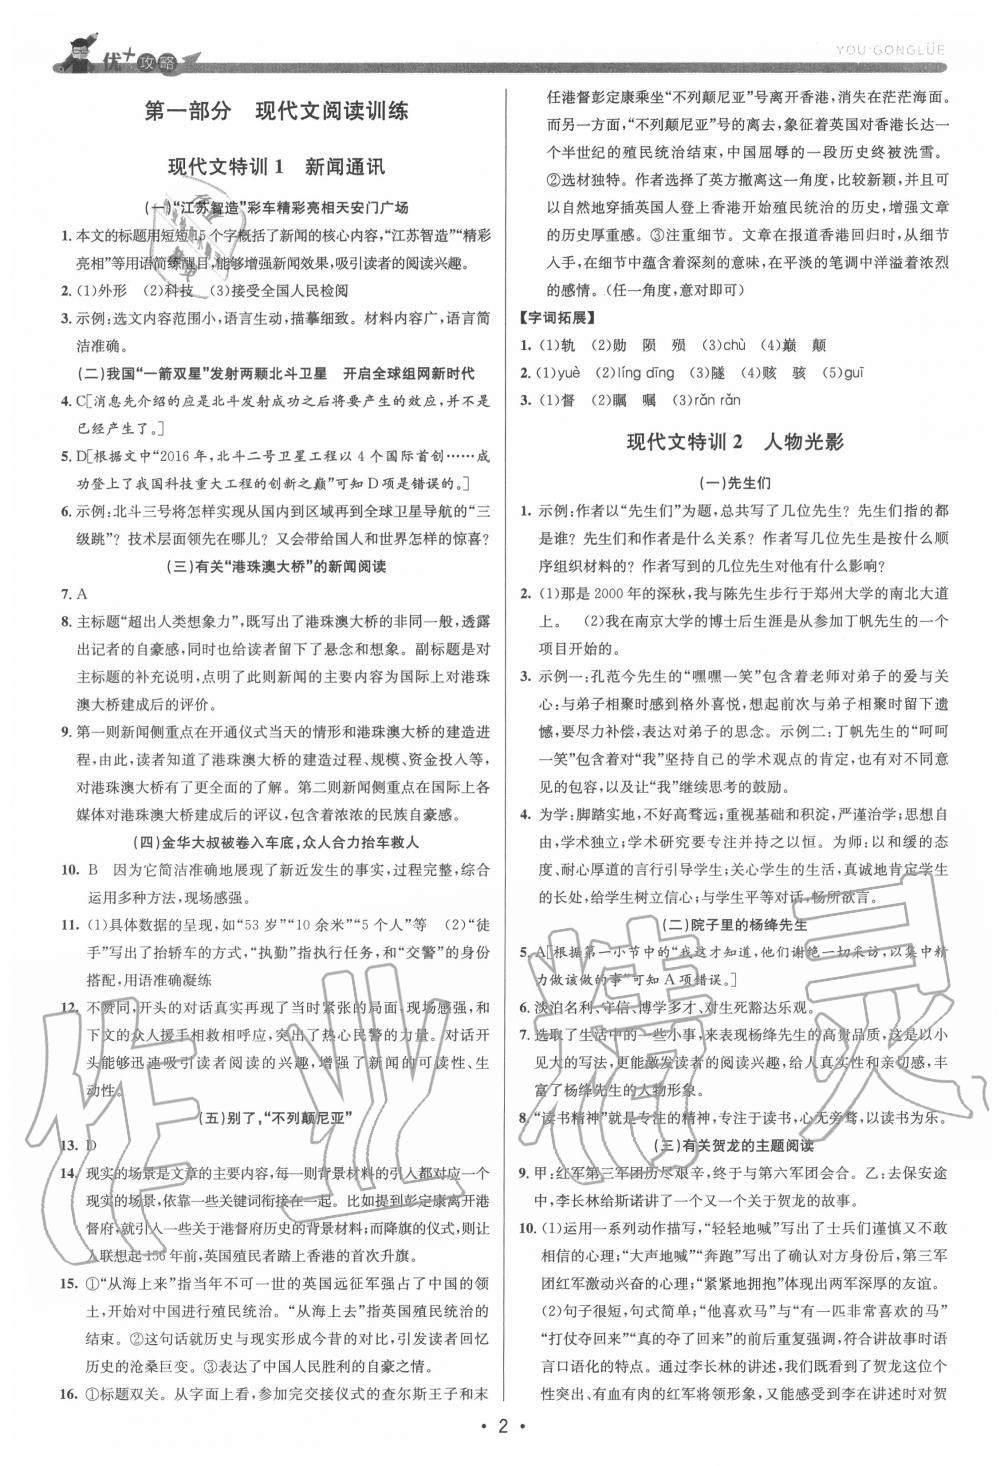 优+攻略
YOU·GONGLÜE
第一部分　现代文阅读训练
现代文特训1　新闻通讯
(一)“江苏智造”彩车精彩亮相天安门广场
1. 本文的标题用短短15个字概括了新闻的核心内容,“江苏智造”“精彩
亮相”等用语简练醒目,能够增强新闻效果,吸引读者的阅读兴趣。
2. (1)外形　(2)科技　(3)接受全国人民检阅
3. 示例:选文内容范围小,语言生动,描摹细致。材料内容广,语言简
洁准确。
(二)我国“一箭双星”发射两颗北斗卫星　开启全球组网新时代
4. C[消息先介绍的应是北斗发射成功之后将要产生的效应,并不是
已经产生了。]
5. D[根据文中“2016年,北斗二号卫星工程以4个国际首创……成
功登上了我国科技重大工程的创新之巅”可知D项是错误的。]
6. 示例:北斗三号将怎样实现从国内到区域再到全球卫星导航的“三
级跳”? 技术层面领先在哪儿? 又会带给国人和世界怎样的惊喜?
(三)有关“港珠澳大桥”的新闻阅读
7. A
8. 主标题“超出人类想象力”,既写出了港珠澳大桥的非同一般,透露
出记者的自豪感,同时也给读者留下了悬念和想象。副标题是对
主标题的补充说明,点明了此则新闻的主要内容为国际上对港珠
澳大桥建成后的评价。
9. 第一则新闻侧重点在开通仪式当天的情形和港珠澳大桥的建造进
程,由此,读者知道了港珠澳大桥的建造过程、规模、资金投入等,
对港珠澳大桥有了更全面的了解。第二则新闻侧重点在国际上各
媒体对港珠澳大桥建成后的评议,包含着浓浓的民族自豪感。
(四)金华大叔被卷入车底,众人合力抬车救人
10. B　因为它简洁准确地展现了新近发生的事实,过程完整,综合
运用多种方法,现场感强。
11. (1)具体数据的呈现,如“53岁”“10余米”“5个人”等　(2)“徒
手”写出了抬轿车的方式,“执勤”指执行任务,和“交警”的身份
搭配,用语准确凝练
12. 不赞同,开头的对话真实再现了当时紧张的局面,现场感强,和
下文的众人援手相救相呼应,突出了热心民警的力量。对话开
头能够迅速吸引读者阅读的兴趣,增强了新闻的可读性、生
动性。
(五)别了,“不列颠尼亚”
13. D
14. 现实的场景是文章的主要内容,每一则背景材料的引入都对应
现实的场景,依靠一些关键词衔接在一起。比如提到彭定康离开港
督府,就有一些关于港督府历史的背景材料;而降旗的仪式,则让
人联想起156年前,英国殖民者踏上香港的首次升旗。
15. ①“从海上来”指当年不可一世的英国远征军强占了中国的领
土,开始对中国进行殖民统治。“从海上去”指英国殖民统治的
结束。②这句话就历史与现实形成今昔的对比,引发读者回忆
历史的沧桑巨变。③表达了中国人民胜利的自豪之情。
16. ①标题双关。从字面上看,参加完交接仪式的查尔斯王子和末
任港督彭定康乘坐“不列颠尼亚”号离开香港,消失在茫茫海面。
而另一方面,“不列颠尼亚”号的离去,象征着英国对香港长达一
个半世纪的殖民统治结束,中国屈辱的一段历史终被洗雪。
②选材独特。作者选择了英方撤离这一角度,比较新颖,并且可
以自然地穿插英国人登上香港开始殖民统治的历史,增强文章
的历史厚重感。③注重细节。文章在报道香港回归时,从细节
入手,在细节中蕴含着深刻的意味,在平淡的笔调中洋溢着浓烈
的感情。(任一角度,意对即可)
【字词拓展】
1. (1)轨　(2)勋　陨　殒　(3)chù　(4)巅　颠
2. (1)yuè　(2)líng dīng　(3)隧　(4)赅　骇　(5)guī
3. (1)督　(2)瞩　嘱　(3)rǎn rǎn
现代文特训2　人物光影
(一)先生们
1. 示例:作者以“先生们”为题,总共写了几位先生? 先生们指的都
是谁? 先生们和作者是什么关系? 作者写几位先生是按什么顺
序组织材料的? 作者写到的几位先生对他有什么影响?
2. (1)那是2000年的深秋,我与陈先生步行于郑州大学的南北大道
上。　(2)我在南京大学的博士后生涯是从参加丁帆先生的一个
项目开始的。
3. 示例一:孔范今先生的“嘿嘿一笑”包含着老师对弟子的爱与关
心:与弟子相聚时感到格外喜悦,想起前次与弟子相聚时留有遗
憾,要尽力补偿,表达对弟子的思念。示例二:丁帆先生的“呵呵
一笑”包含着对“我”坚持自己的学术观点的肯定,也有对“我”
意见的包容,以及让“我”继续思考的鼓励。
4. 为学:脚踏实地,不好高骛远;重视基础和积淀,严谨治学;思想自
由,学术独立;学术研究要专注并持之以恒。为师:以和缓的态
度、耐心厚道的言行引导学生;关心学生的生活,真诚地肯定学生
的长处,给学生树立信心;与学生平等对话,畅所欲言。
(二)院子里的杨绛先生
5. A[根据第一小节中的“我这才知道,他们谢绝一切采访,以集中精
力做该做的事”可知A项错误。]
6. 淡泊名利、守信、博学多才、对生死豁达乐观。
7. 选取了生活中的一些小事,来表现杨绛先生的高贵品质,这是以小
见大的写法,更能激发读者的阅读兴趣,给人真实性和亲切感,丰
富了杨绛先生的人物形象。
8. “读书精神”就是专注的精神,专注于读书,心无旁骛,以读书为乐。
(三)有关贺龙的主题阅读
9. 甲:红军第三军团历尽艰辛,终于与第六军团会合。乙:去保安途
中,李长林给斯诺讲了一个又一个关于贺龙的故事。
10. (1)运用一系列动作描写,“轻轻地喊”写出了士兵们谨慎又不敢
相信的心理;“大声地喊”“奔跑”写出了确认对方身份后,第三军
团红军激动兴奋的心理;“紧紧地拥抱”体现出两军深厚的友谊。
(2)句子很短,句式简单;“他喜欢马”与“有一匹非常喜欢的马”
“打仗夺回来”“真的夺了回来”的前后重复强调,符合讲故事时语
言口语化的特点。通过李长林的讲述,我们既看到了贺龙这位个
性突出、有血有肉的红军将领形象,又能感受到李在讲述时对贺
• 2 •
作业精灵